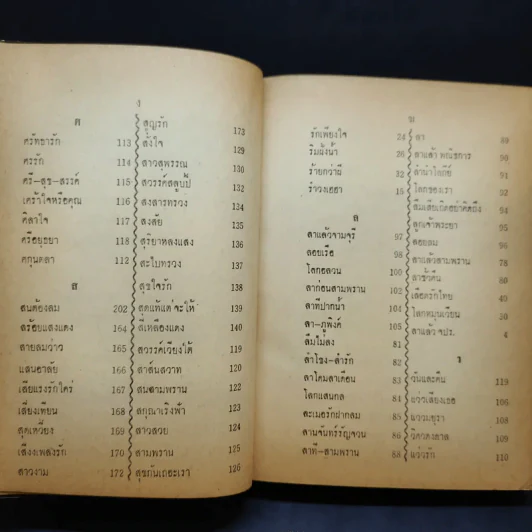 ง
ศ
ศรัทธารัก 113
ศรรัก 114
ศรี-สุข-สรรค์ 115
เศร้าใจหรือคุณ 116
ศิลาใจ 117
ศรีอยุธยา 118
ศกุนตลา 112
ส
สนต้องลม 202
สร้อยแสงแดง 164
สายลมว่าว 165
แสนอาลัย 166
เสียแรงรักใคร่ 167
เสี่ยงเทียน 168
สุดเหวี่ยง 169
เสียงเพลงรัก 170
สาวงาม 172
สูญรัก 173
สั่งใจ 129
สาวสุพรรณ 130
สวรรค์สลูป 132
สงสารทรวง 134
สงสัย 135
สุริยาหลงแสง 136
สะใบทรวง 137
สุขใจรัก 138
สุดแท้แต่จะให้ 139
สี่เหลืองแดง 140
สวรรค์เวียงใต้ 119
สาส์นสวาท 120
สนสามพราน 122
สกุณาเริงฟ้า 123
สาวสวย 124
สามพราน 125
สุขกันเถอะเรา 126
ข
รักเพียงใจ 24
ริมฝั่งน้ำ 26
ร้ายกว่าผี 32
รำวงเฮฮา 15
ล
ลาแล้วจามจุรี 97
ลอยเรือ 98
โลกอลวน 100
ลาก่อนสามพราน 102
ลาทีปากน้ำ 104
ลา-ภูพิงค์ 105
ลืมไม่ลง 81
ลำโขง-ลำรัก 82
ลาโดมลาเดือน 83
โลกแสนกล 84
ละเมอรักฝากลม 85
ลานจันทร์รัญจวน 86
ลาที-สามพราน 88
ลา 89
ลาแล้ว พณิชการ 90
ลำนำโลกีย์ 91
โลกของเรา 92
ลืมเสียเถิดอย่าคิดถึง 94
ลูกเจ้าพระยา 95
ลอยลม
ลาแล้วสามพราน 78
ลาชั่วคืน 80
เลือดรักไทย 40
โลกหมุนเวียน 30
ลาแล้ว จปร. 4
ว
วันและคืน 119
แว่วเสียงเธอ 106
แววมยุรา 108
วิดวงดาส 109
แววรัก 110